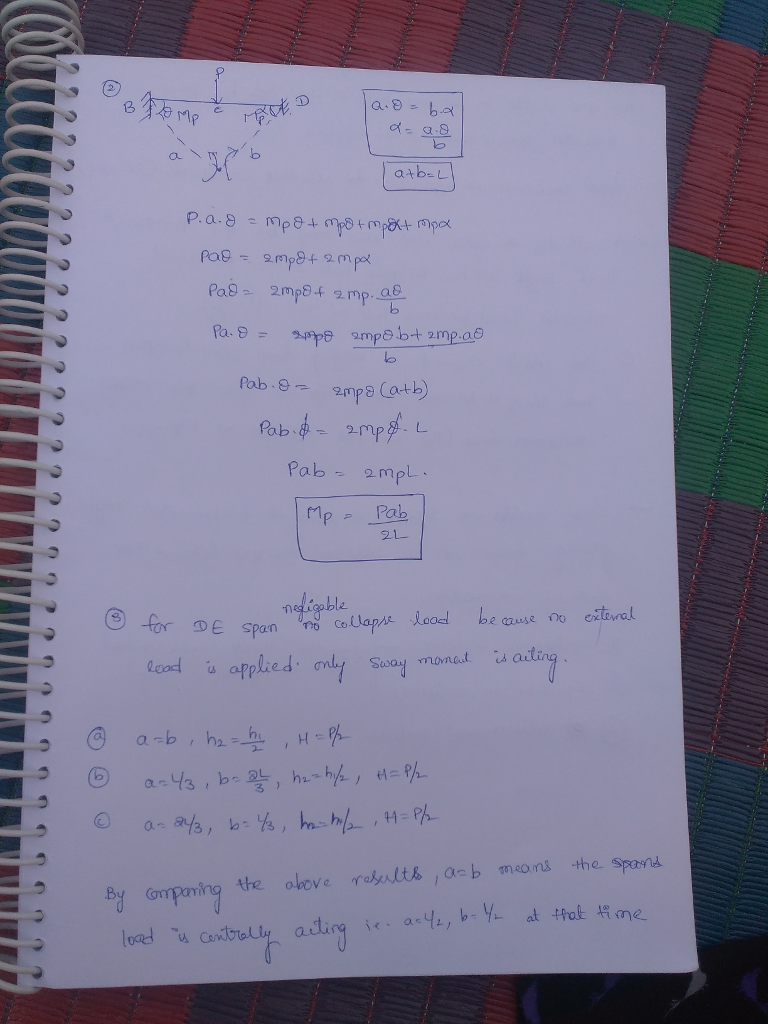 ②
P
B θ Mp c Mp α D
a b
a.θ = b.α
α = a.θ/b
a+b=L
P.a.θ = Mpθ + Mpθ + Mpα + Mpα
Paθ = 2Mpθ + 2Mpα
Paθ = 2Mpθ + 2Mp. aθ/b
Pa.θ = 2Mpθ.b + 2Mp.aθ / b
Pab.θ = 2Mpθ (a+b)
Pab.θ = 2Mpθ. L
Pab = 2MpL.
Mp = Pab/2L
③ for DE span negligable no collapse load because no external
load is applied. only sway moment is aiting.
ⓐ a=b, h2=h1/2, H=P/2
ⓑ a=L/3, b=2L/3, h2=h1/2, H=P/2
ⓒ a=2L/3, b=L/3, h2=h1/2, H=P/2
By comparing the above results, a=b means the
load is centrally aiting i.e. a=L/2, b=L/2 at that time